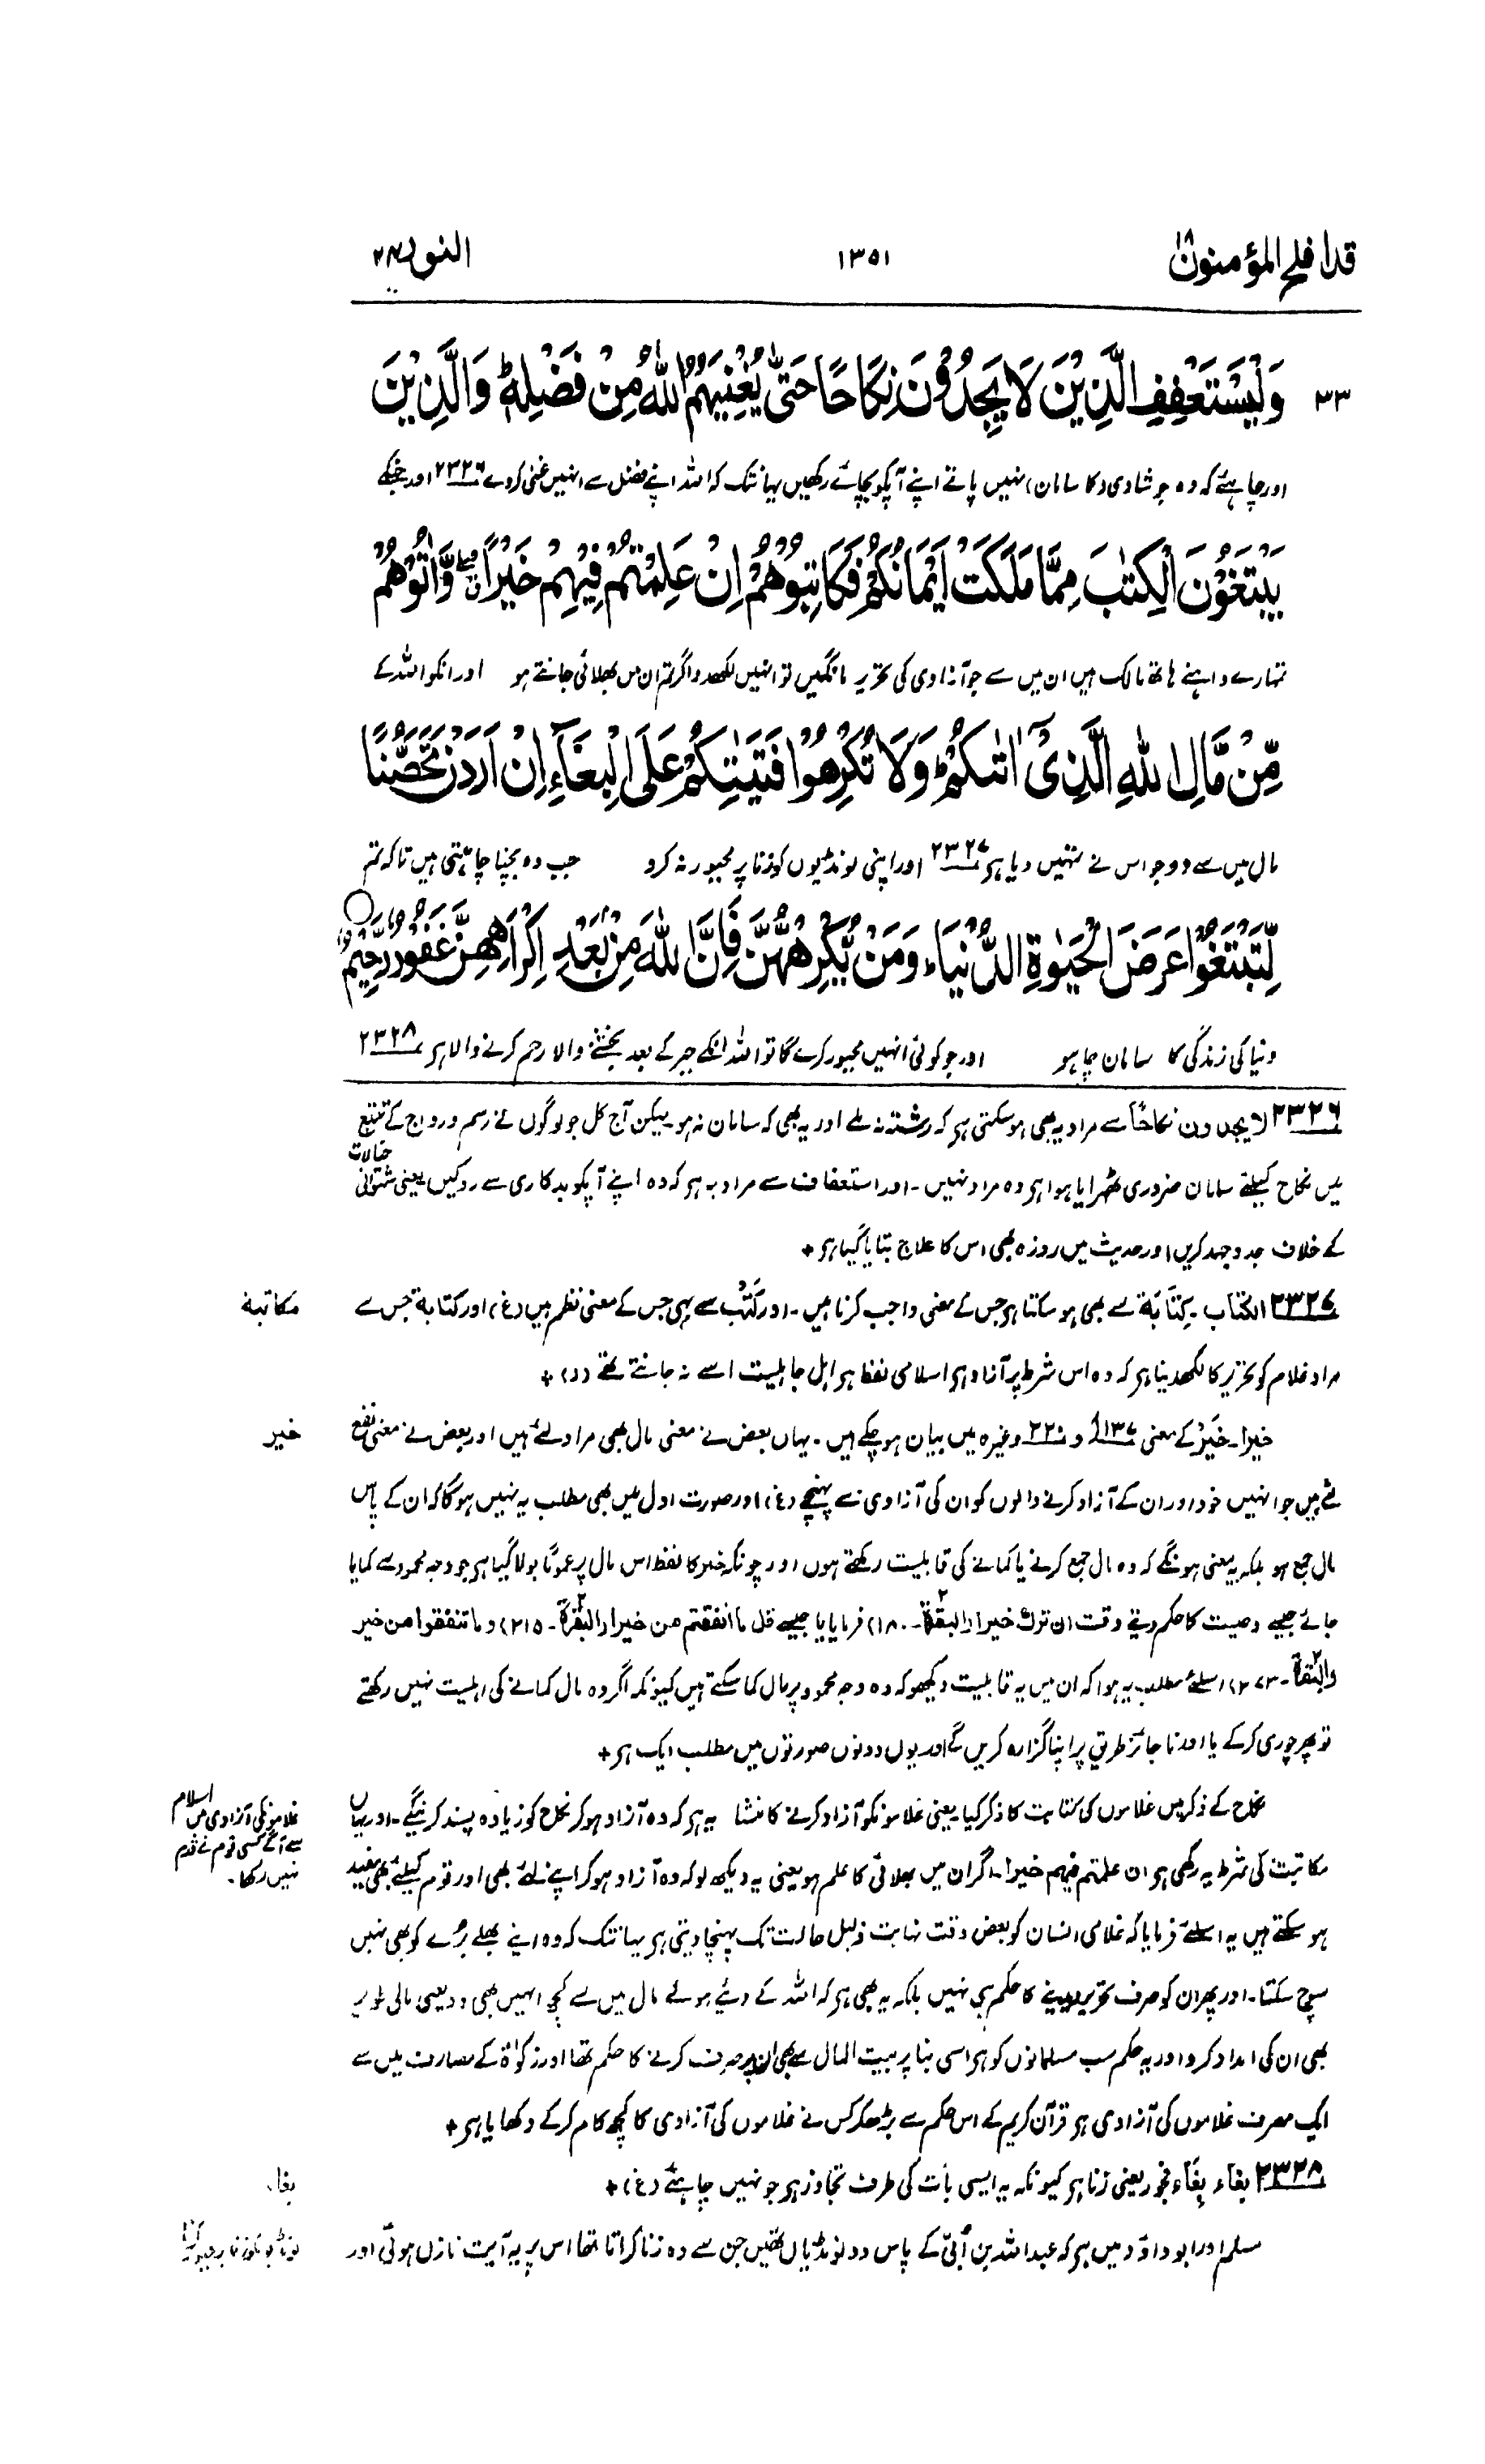 قد افلح المؤمنون ۱۸
۱۳۵۱
النور ۲۴
۳۳ وَلْيَسْتَعْفِفِ الَّذِيْنَ لَا يَجِدُوْنَ نِكَاحًا حَتّٰى يُغْنِيَهُمُ اللّٰهُ مِنْ فَضْلِهٖ ؕ وَالَّذِيْنَ
اور چاہئے کہ وہ جو شادی (کا سامان) نہیں پاتے اپنے آپکو بچائے رکھیں یہانتک کہ اللہ اپنے فضل سے انہیں غنی کردے ۲۳۲۶ اور جنکے
يَبْتَغُوْنَ الْكِتٰبَ مِمَّا مَلَكَتْ اَيْمَانُكُمْ فَكَاتِبُوْهُمْ اِنْ عَلِمْتُمْ فِيْهِمْ خَيْرًا ۖ وَّاٰتُوْهُمْ
تمہارے داہنے ہاتھ مالک ہیں ان میں سے جو آزادی کی تحریر مانگیں تو انہیں لکھدو اگر تم ان میں بھلائی جانتے ہو اور انکو اللہ کے
مِّنْ مَّالِ اللّٰهِ الَّذِيْۤ اٰتٰىكُمْ ؕ وَلَا تُكْرِهُوْا فَتَيٰتِكُمْ عَلَى الْبِغَآءِ اِنْ اَرَدْنَ تَحَصُّنًا
مال میں سے دو جو اس نے تمہیں دیا ہر ۲۳۲۷ اور اپنی لونڈیوں کو زنا پر مجبور نہ کرو جب وہ بچنا چاہتی ہیں تاکہ تم
لِّتَبْتَغُوْا عَرَضَ الْحَيٰوةِ الدُّنْيَا ؕ وَمَنْ يُّكْرِهْهُّنَّ فَاِنَّ اللّٰهَ مِنْۢ بَعْدِ اِكْرَاهِهِنَّ غَفُوْرٌ رَّحِيْمٌ
دنیا کی زندگی کا سامان چاہو اور جو کوئی انہیں مجبور کرے گا تو اللہ انکے جبر کے بعد بخشنے والا رحم کرنے والا ہر ۲۳۲۸
۲۳۲۶ لا یجدون نکاحًا سے مراد یہ بھی ہوسکتی ہر کہ رشتہ نہ ملے اور یہ بھی کہ سامان نہ ہو لیکن آج کل جو لوگوں نے رسم ورواج کے تتبع
میں نکاح کیلئے سامان ضروری ٹھہرایا ہوا ہر وہ مراد نہیں۔ اور استعفاف سے مراد یہ ہر کہ وہ اپنے آپکو بدکاری سے روکیں یعنی شہوانی خیالات
کے خلاف جدوجہد کریں اور حدیث میں روزہ بھی اس کا علاج بتایا گیا ہر +
۲۳۲۷ الکتاب۔ کِتَابَة سے بھی ہو سکتا ہر جس کے معنی واجب کرنا ہیں۔ اور کَتَبَ سے بھی جس کے معنی نظم ہیں (غ) اور کتابة جس سے
مکاتبة
مراد غلام کو تحریر کا لکھدینا ہر کہ وہ اس شرط پر آزاد ہر اسلامی لفظ ہر اہل جاہلیت اسے نہ جانتے تھے (ر) +
خیرا۔ خَیْر کے معنی ۱۳۷ و ۲۲۰ وغیرہ میں بیان ہوچکے ہیں۔ یہاں بعض نے معنی مال بھی مراد لئے ہیں اور بعض نے معنی نفع
خیر
لئے ہیں جو انہیں خود اور ان کے آزاد کرنے والوں کو ان کی آزادی سے پہنچے (غ) اور صورت اول میں بھی مطلب یہ نہیں ہوگا کہ ان کے پاس
مال جمع ہو بلکہ یہ معنی ہونگے کہ وہ مال جمع کرنے یا کمانے کی قابلیت رکھتے ہوں اور چونکہ خیر کا لفظ اس مال پر عمومًا بولا گیا ہر جو وجہ محمود سے کمایا
جائے جیسے وصیت کا حکم دیتے وقت ان ترك خیرا (البقرة ۲۔ ۱۸۰) فرمایا یا جیسے قل ما انفقتم من خیر (البقرة ۲۔ ۲۱۵) وما تنفقوا من خیر
(البقرة ۲۔ ۲۷۳) اسلئے مطلب یہ ہوا کہ ان میں یہ قابلیت دیکھو کہ وہ وجہ محمود پر مال کما سکتے ہیں کیونکہ اگر وہ مال کمانے کی اہلیت نہیں رکھتے
تو پھر چوری کرکے یا اور ناجائز طریق پر اپنا گزارہ کریں گے اور یوں دونوں صورتوں میں مطلب ایک ہر +
نکاح کے ذکر میں غلاموں کی کتابت کا ذکر کیا یعنی غلامونکو آزاد کرنے کا منشا یہ ہر کہ وہ آزاد ہوکر نکاح کو زیادہ پسند کرینگے۔ اور یہاں
غلامونکی آزادی میں اسلام
سے آگے کسی قوم نے قدم
نہیں رکھا۔
مکاتبت کی شرط یہ رکھی ہر ان علمتم فیہم خیرا۔ اگر ان میں بھلائی کا علم ہو یعنی یہ دیکھ لو کہ وہ آزاد ہوکر اپنے لئے بھی اور قوم کیلئے بھی مفید
ہو سکتے ہیں یہ اسلئے فرمایا کہ غلامی انسان کو بعض وقت نہایت ذلیل حالت تک پہنچا دیتی ہر یہانتک کہ وہ اپنے بھلے بُرے کو بھی نہیں
سوچ سکتا۔ اور پھر ان کو صرف تحریر دیدینے کا حکم ہی نہیں بلکہ یہ بھی ہر کہ اللہ کے دئیے ہوئے مال میں سے کچھ انہیں بھی دو یعنی مالی طور پر
بھی ان کی امداد کرو اور یہ حکم سب مسلمانوں کو ہر اسی بنا پر بیت المال سے بھی ان پر صرف کرنے کا حکم تھا اور زکوٰة کے مصارف میں سے
ایک مصرف غلاموں کی آزادی ہر قرآن کریم کے اس حکم سے بڑھکر کس نے غلاموں کی آزادی کا کچھ کام کرکے دکھایا ہر +
۲۳۲۸ بغآء۔ بِغَآء فجور یعنی زنا ہر کیونکہ یہ ایسی بات کی طرف تجاوز ہر جو نہیں چاہئے (غ) +
بغاء
مسلم اور ابو داؤد میں ہر کہ عبداللہ بن اُبیّ کے پاس دو لونڈیاں تھیں جن سے وہ زنا کراتا تھا اس پر یہ آیت نازل ہوئی اور